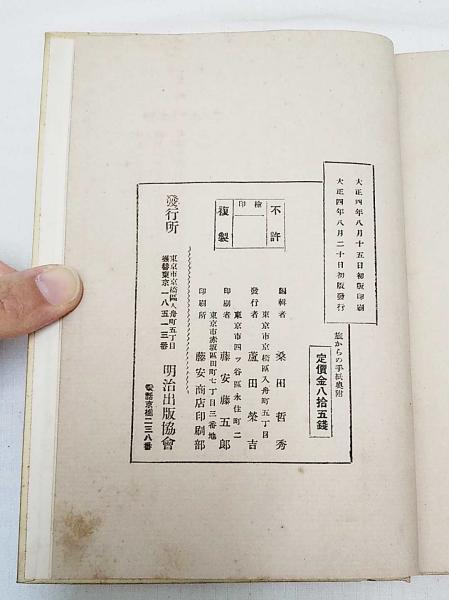 大正四年八月十五日初版印刷
大正四年八月二十日初版發行
旅からの手紙奥附
定價金八拾五錢
不許
檢印
複製
編輯者　桑田哲秀
東京市京橋區入舟町五丁目
發行者　蘆田榮吉
東京市四ツ谷區永住町二
印刷者　藤安藤五郎
東京市赤坂區田町七丁目三番地
印刷所　藤安商店印刷部
發行所
東京市京橋區入舟町五丁目
振替東京一八五一三番
明治出版協會
電話京橋二三八番